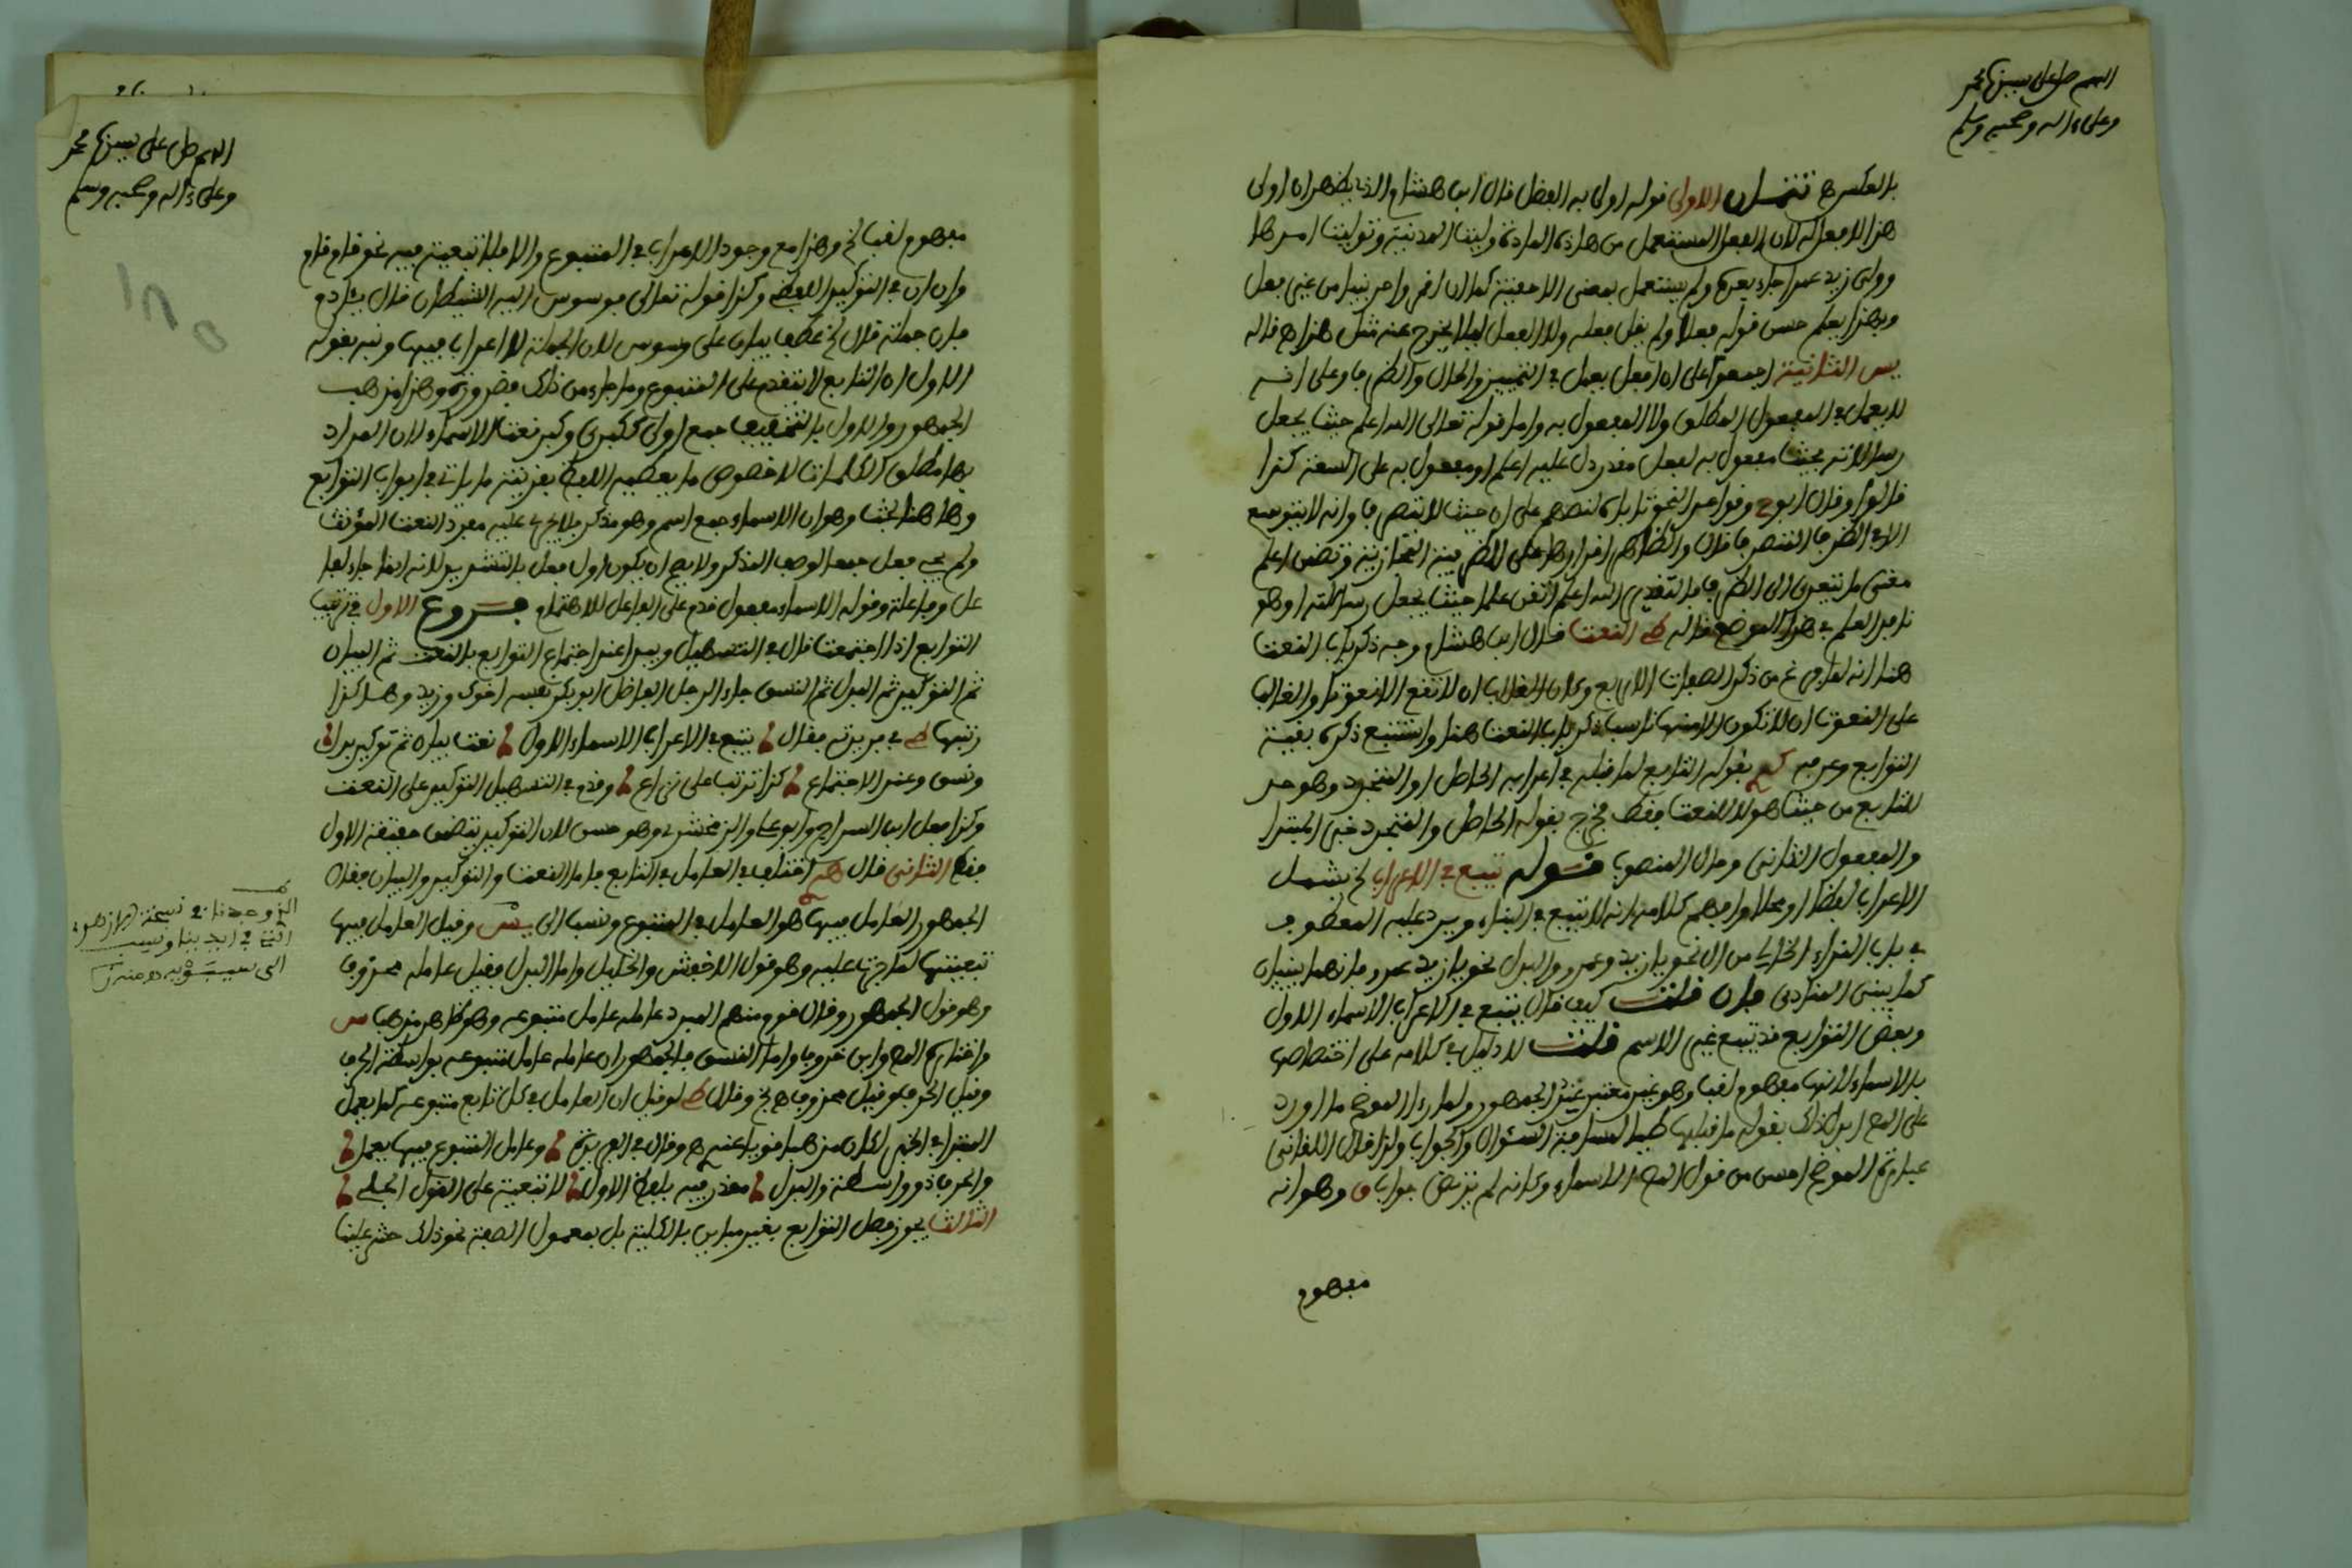 اللهم صل على سيدنا محمد
وعلى ءاله وصحبه وسلم
بالعكس ه تنبيهان الاولى قوله اولى به الفضل قال ابن هشام والذي يظهر ان اولى
هذا لا فعل له لان الفعل المستعمل من هاذه المادة وليت المدنية وتوليت امرها
وولى زيد عمرا جاء بعده ولم يستعمل بمعنى الاحقية كما ان اول واحد بنيا من غير فعل
وبهذا يعلم حسن قوله فعلا ولم يقل فعله ولا الفعل ليلا يخرج عنه مثل هذا ه قاله
يس الثانية اجمعوا على ان افعل يعمل في التمييز والحال والظرف وعلى انه
لا يعمل في المفعول المطلق ولا المفعول به واما قوله تعالى الله اعلم حيث يجعل
رسالاته فحيث مفعول به لفعل مقدر دل عليه اعلم او مفعول به على السعة كذا
قالوا وقال ابو ح وقواعد النحو تاباه لنصهم على ان حيث لا تتصرف وانه لا يتوسع
الا في الظرف المتصرف قال والظاهر اقرارها على الظرفية المجازية وتضمن اعلم
معنى ما يتعدى الى الظرف فالتقدير الله اعلم انفذ علما حيث يجعل رسالته او هو
نافذ العلم في هذا الموضع قاله ط النعت قال ابن هشام وجه ذكر باب النعت
هنا انه لما فرغ من ذكر الصفات الاربع وكان الغالب ان لا تقع الا نعوتا والغالب
على النعوت ان لا تكون الا منها ناسب ذكر باب النعت هنا واستتبع ذكره بقية
التوابع وعرفه بقوله التابع لما قبله في اعرابه الحاصل او المتجدد وهو حد
للتابع من حيث هو لا للنعت فقط فخرج بقوله الحاصل والمتجدد خبر المبتدا
والمفعول الثاني وحال المنصوب قوله يتبع في الاعراب الخ يشمل
الاعراب لفظا او محلا وافهم كلامه انه لا يتبع في البناء ويرد عليه المعطوف
في باب النداء الخالي من ال نحو يا زيد وعمرو والبدل نحو يا زيد عمرو فانهما يبنيان
كما يبنى المنادى فان قلت كيف قال يتبع في الاعراب الاسماء الاول
وبعض التوابع قد يتبع غير الاسم قلت لا دليل في كلامه على اختصاصها
بالاسماء لانها مفهوم لقب وهو غير معتبر عند الجمهور ولما راى الموضح ما اورد
على المص ابدل ذلك بقوله ما قبلها طلبا لسلامة السؤال والجواب ولذا قال اللقاني
عبارة الموضح احسن من قول المص الاسماء وكانه لم يرتض جواب ق وهو انه
مفهوم
اللهم صل على سيدنا محمد
وعلى ءاله وصحبه وسلم
مفهوم لقب الخ وهذا مع وجود الاعراب في المتبوع والا فلا تبعية فيه نحو قام قام
وان ان في التوكيد اللفظي وكذا قوله تعالى فوسوس اليه الشيطان قال يئادم
فان جملة قال الخ عطف بيان على وسوس لان الجملة لا اعراب فيها ونبه بقوله
الاول ان التابع لا يتقدم على المتبوع وما جاء من ذلك فضرورة وهذا مذهب
الجمهور والاول بالتخفيف جمع اولى ككبرى وكبر نعت للاسماء لان المراد
بها مطلق الكلمات لا خصوص ما يعطيه اللفظ بقرينة ما ياتي في ابواب التوابع
وهاهنا بحث وهو ان الاسماء جمع اسم وهو مذكر فلا يجري عليه مفرد النعت المؤنث
ولم يجئ فعل جمعا لوصف المذكر ولا يصح ان يكون اول فعل بالتشديد لانه انما جاء لفا
عل وفاعلة وقوله الاسماء مفعول قدم على الفاعل للاهتمام فروع الاول في ترتيب
التوابع اذا اجتمعت قال في التسهيل ويبدا عند اجتماع التوابع بالنعت ثم البيان
ثم التوكيد ثم البدل ثم النسق جاء الرجل الفاضل ابو بكر نفسه اخوك وزيد وهاكذا
رتبها ط في فريدته فقال يتبع في الاعراب الاسماء الاول نعت بيان ثم توكيد بدل
ونسق وعند الاجتماع كذا ترتب على نزاع وقدم في التسهيل التوكيد على النعت
وكذا فعل ابن السراج وابو علي والزمخشري وهو حسن لان التوكيد يتضمن حقيقة الاول
فقط الثاني قال اختلف في العامل في التابع فاما النعت والتوكيد والبيان فقال
الجمهور العامل فيها هو العامل في المتبوع ونسب الى يس وقيل العامل فيها
تبعيتها لما جرت عليه وهو قول الاخفش والخليل واما البدل فقيل عامله محذوف
وهو قول الجمهور وقال قوم منهم المبرد عامله عامل متبوعه وهو ظاهر مذهب س
واختاره المص وابن خروف واما النسق فالجمهور ان عامله عامل متبوعه بواسطة الحرف
وقيل الحرف وقيل محذوف ه وقال ط لو قيل ان العامل في كل تابع متبوعه كما يعمل
المبتدا في الخبر لكان مذهبا قويا عندي ه وقال في الفريدة وعامل المتبوع فيها يعمل
والحرف ذو واسطة والبدل مقدر فيه بلفظ الاول لا تبعية على القول الجلي
الثالث يجوز فصل التوابع بغير مباين بالكلية بل بمعمول الصفة نحو ذلك حشر علينا
الذي وجدنا في نسخة الازهري
التي في ايدينا ونسب
الى سيبويه